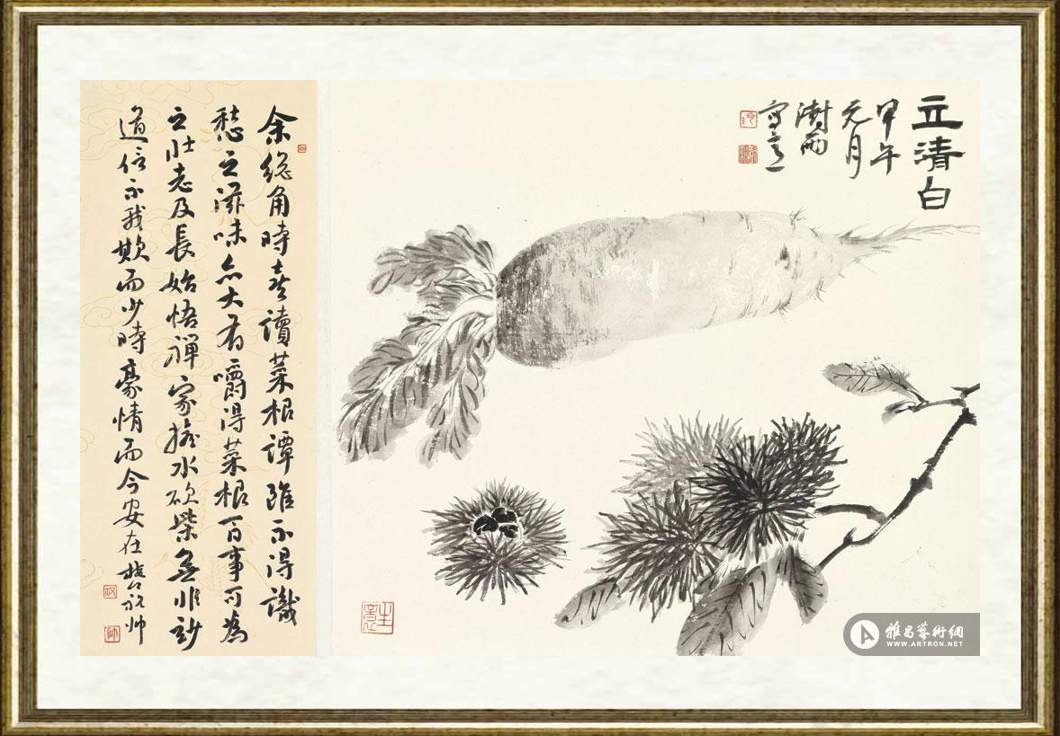 立清白
甲午
元月
澍雨
余總角時喜讀菜根譚雖不得識
愁之滋味亦大有嚼得菜根百事可為
之壯志及長始悟禪家擔水砍柴無非妙
道信不我欺而少時豪情而今安在 祝帅
雅昌藝術網
WWW.ARTRON.NET